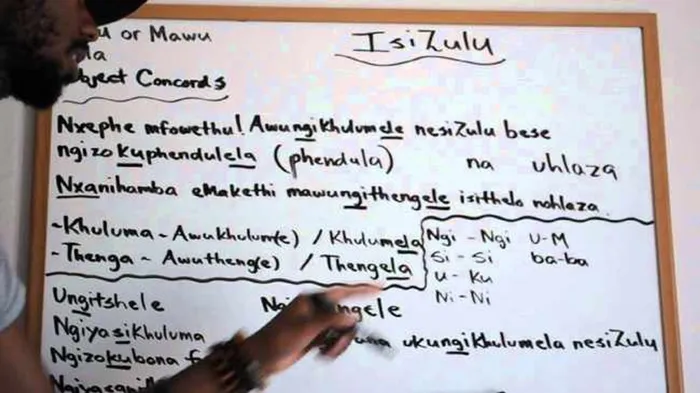 or Mawu
IsiZulu
Object Concords
Nxephe mfowethu! Awungikhulumele nesiZulu bese
ngizokuphendulela (phendula) na uhlaza
Nxanihamba eMakethi mawungithengele isithelo nohlaza.
-Khuluma - Awukhulum(e) / Khulumela
-Thenga - Awutheng(e) / Thengela
Ngi - Ngi U-M
Si - Si ba-ba
U - Ku
Ni-Ni
Ungitshele
Ngiyasikhuluma
ukungikhulumela nesiZulu
Ngizokubona